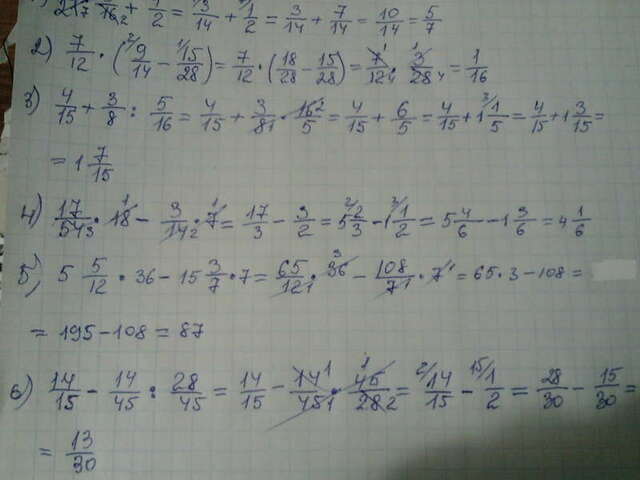 + 1/2 = 3/14 + 1/2 = 3/14 + 7/14 = 10/14 = 5/7
2) 7/12 · (9/14 - 15/28) = 7/12 · (18/28 - 15/28) = 7/12 · 3/28 = 1/16
3) 4/15 + 3/8 : 5/16 = 4/15 + 3/8 · 16/5 = 4/15 + 6/5 = 4/15 + 1 1/5 = 4/15 + 1 3/15 =
= 1 7/15
4) 17/54 · 18 - 3/14 · 7 = 17/3 - 3/2 = 5 2/3 - 1 1/2 = 5 4/6 - 1 3/6 = 4 1/6
5) 5 5/12 · 36 - 15 3/7 · 7 = 65/12 · 36 - 108/7 · 7 = 65 · 3 - 108 =
= 195 - 108 = 87
6) 14/15 - 14/45 : 28/45 = 14/15 - 14/45 · 45/28 = 14/15 - 1/2 = 28/30 - 15/30 =
= 13/30